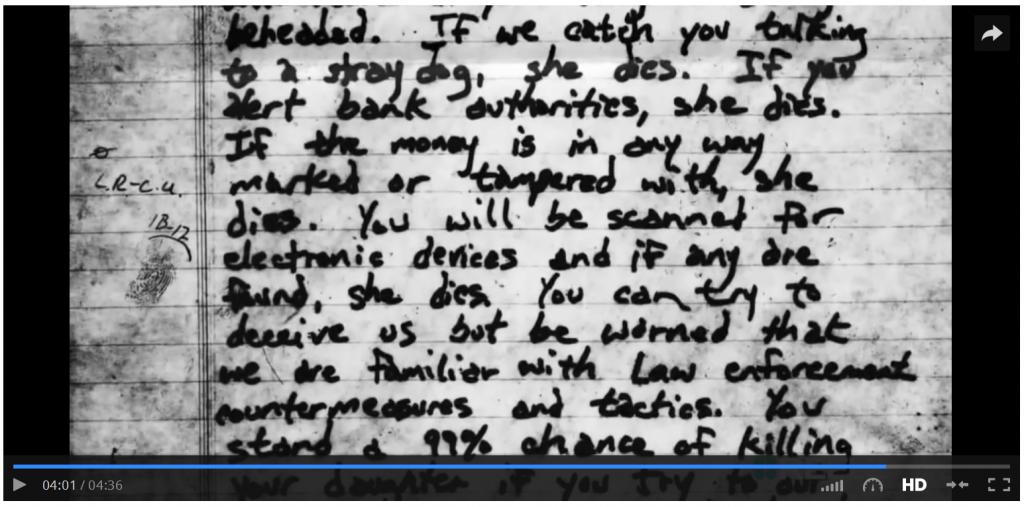 beheaded. If we catch you talking
to a stray dog, she dies. If you
alert bank authorities, she dies.
If the money is in any way
marked or tampered with, she
dies. You will be scanned for
electronic devices and if any are
found, she dies. You can try to
deceive us but be warned that
we are familiar with Law enforcement
countermeasures and tactics. You
stand a 99% chance of killing
your daughter if you try to out
L.R-C.U.
1B-12
04:01 / 04:36
HD